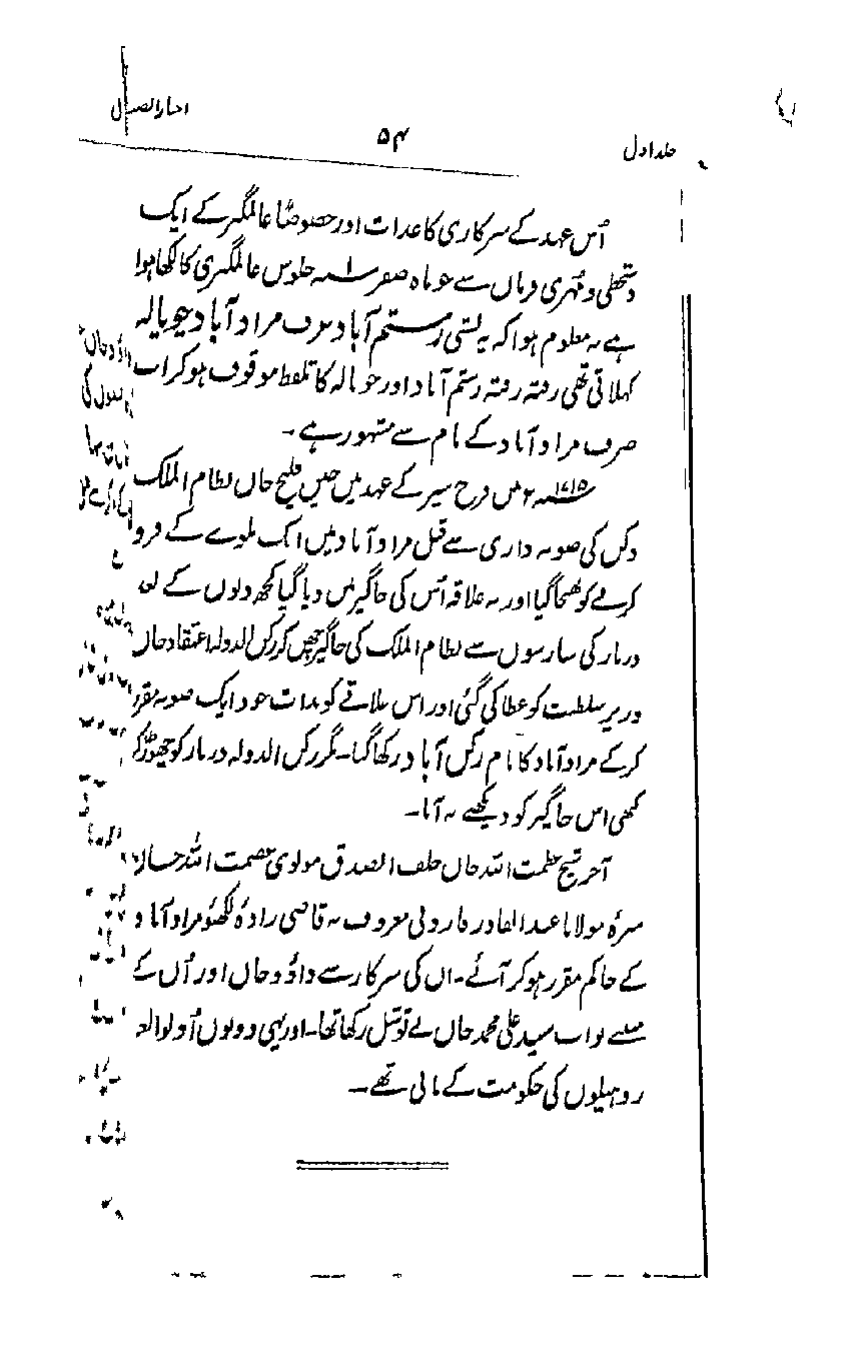 اخبارالصنادید
۵۴
جلداول
اُس عہد کے سرکاری کاغذات اور خصوصًا عالمگیر کے ایک
دستخطی و مُہری فرمان سے جو ماہ صفر سنہ ۱ جلوس عالمگیری کا لکھا ہوا
ہے یہ معلوم ہوا کہ یہ بستی رستم آباد عرف مراد آباد چوپالہ
کہلاتی تھی رفتہ رفتہ رستم آباد اور چوپالہ کا تلفظ موقوف ہو کر اب
صرف مراد آباد کے نام سے مشہور ہے۔
سنہ ۱۷۱۵ء میں فرخ سیر کے عہد میں چین قلیچ خان نظام الملک
دکن کی صوبہ داری سے قبل مراد آباد میں ایک بلوے کے فرو
کرنے کو بھیجا گیا اور یہ علاقہ اُس کی جاگیر میں دیا گیا کچھ دنوں کے بعد
دربار کی سازشوں سے نظام الملک کی جاگیر چھین کر رکن الدولہ اعتقاد خان
وزیر سلطنت کو عطا کی گئی اور اس علاقے کو بذات خود ایک صوبہ مقرر
کر کے مراد آباد کا نام رکن آباد رکھا گیا۔ مگر رکن الدولہ دربار کو چھوڑ کر
کبھی اس جاگیر کو دیکھنے نہ آیا۔
آخر شیخ عظمت اللہ خان خلف الصدق مولوی عصمت اللہ خان
نبیرۂ مولانا عبدالقادر فاروقی معروف بہ قاضی زادۂ لکھنؤ مراد آباد
کے حاکم مقرر ہو کر آئے۔ ان کی سرکار سے داؤد خان اور اُن کے
متبنے نواب سید علی محمد خان نے توسل رکھا تھا۔ اور یہی دونوں اُولوالعزم
روہیلوں کی حکومت کے بانی تھے۔